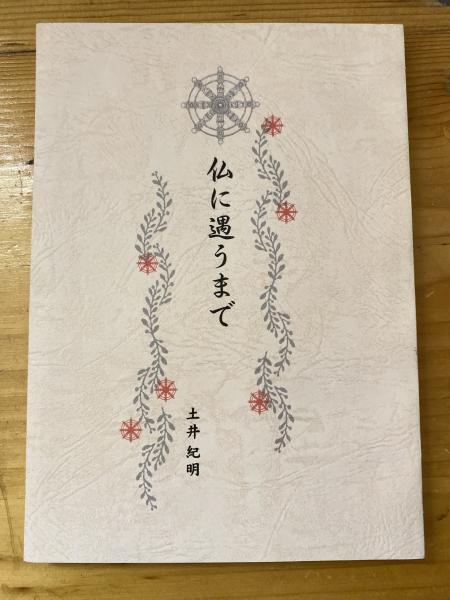 仏に遇うまで
土井紀明